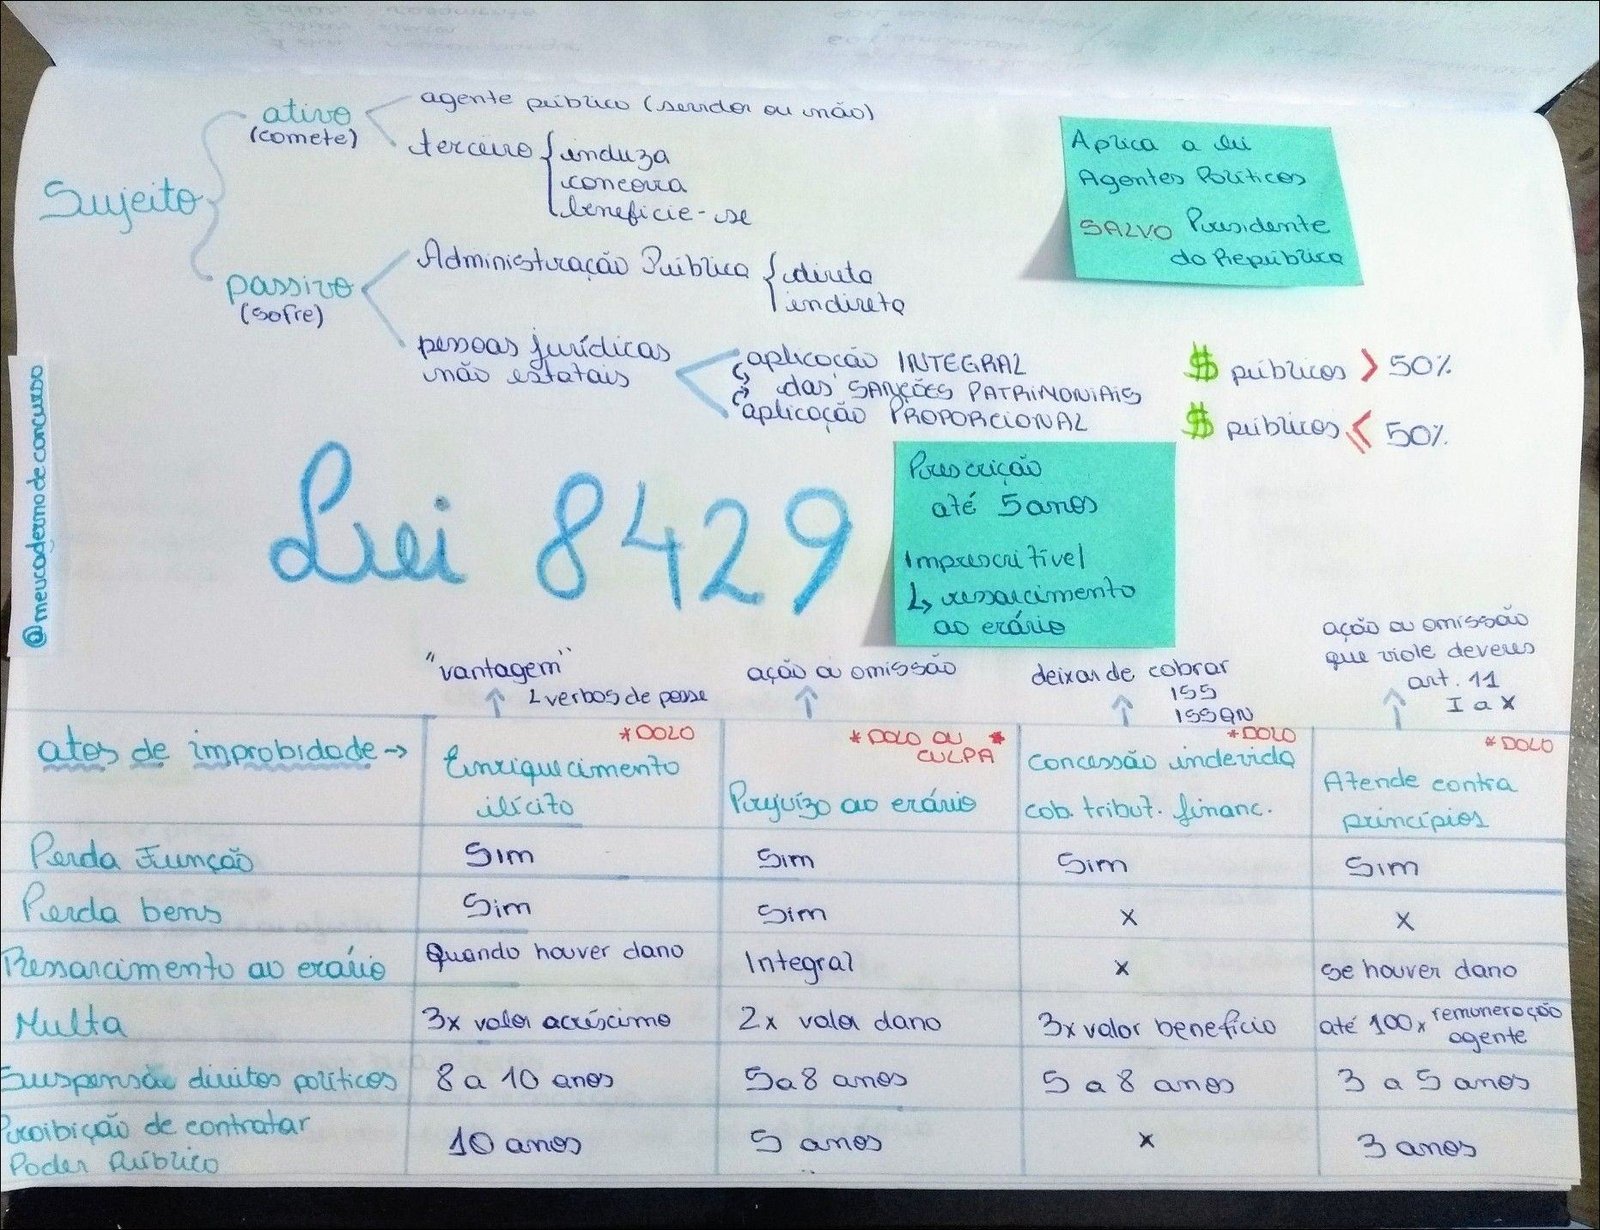 ativo
(comete)
agente público (servidor ou não)
terceiro
induza
concorra
beneficie-se
Sujeito
passivo
(sofre)
Administração Pública
direta
indireta
pessoas jurídicas
não estatais
aplicação INTEGRAL
das SANÇÕES PATRIMONIAIS
aplicação PROPORCIONAL
Aplica a lei
Agentes Políticos
SALVO Presidente
da República
$ públicos > 50%
$ públicos < 50%
@meucadernodeconcurso
Lei 8429
Prescrição
até 5 anos
Imprescritível
↳ ressarcimento
ao erário
"vantagem"
↳ verbos de posse
ação ou omissão
deixar de cobrar
ISS
ISSQN
ação ou omissão
que viole deveres
art. 11
I a X
atos de improbidade →
*DOLO
Enriquecimento
ilícito
*DOLO OU *
CULPA
Prejuízo ao erário
*DOLO
Concessão indevida
cob. tribut. financ.
*DOLO
Atende contra
princípios
Perda Função
Sim
Sim
Sim
Sim
Perda bens
Sim
Sim
x
x
Ressarcimento ao erário
Quando houver dano
Integral
x
se houver dano
Multa
3x valor acréscimo
2x valor dano
3x valor benefício
até 100x remuneração
agente
Suspensão direitos políticos
8 a 10 anos
5 a 8 anos
5 a 8 anos
3 a 5 anos
Proibição de contratar
Poder Público
10 anos
5 anos
x
3 anos